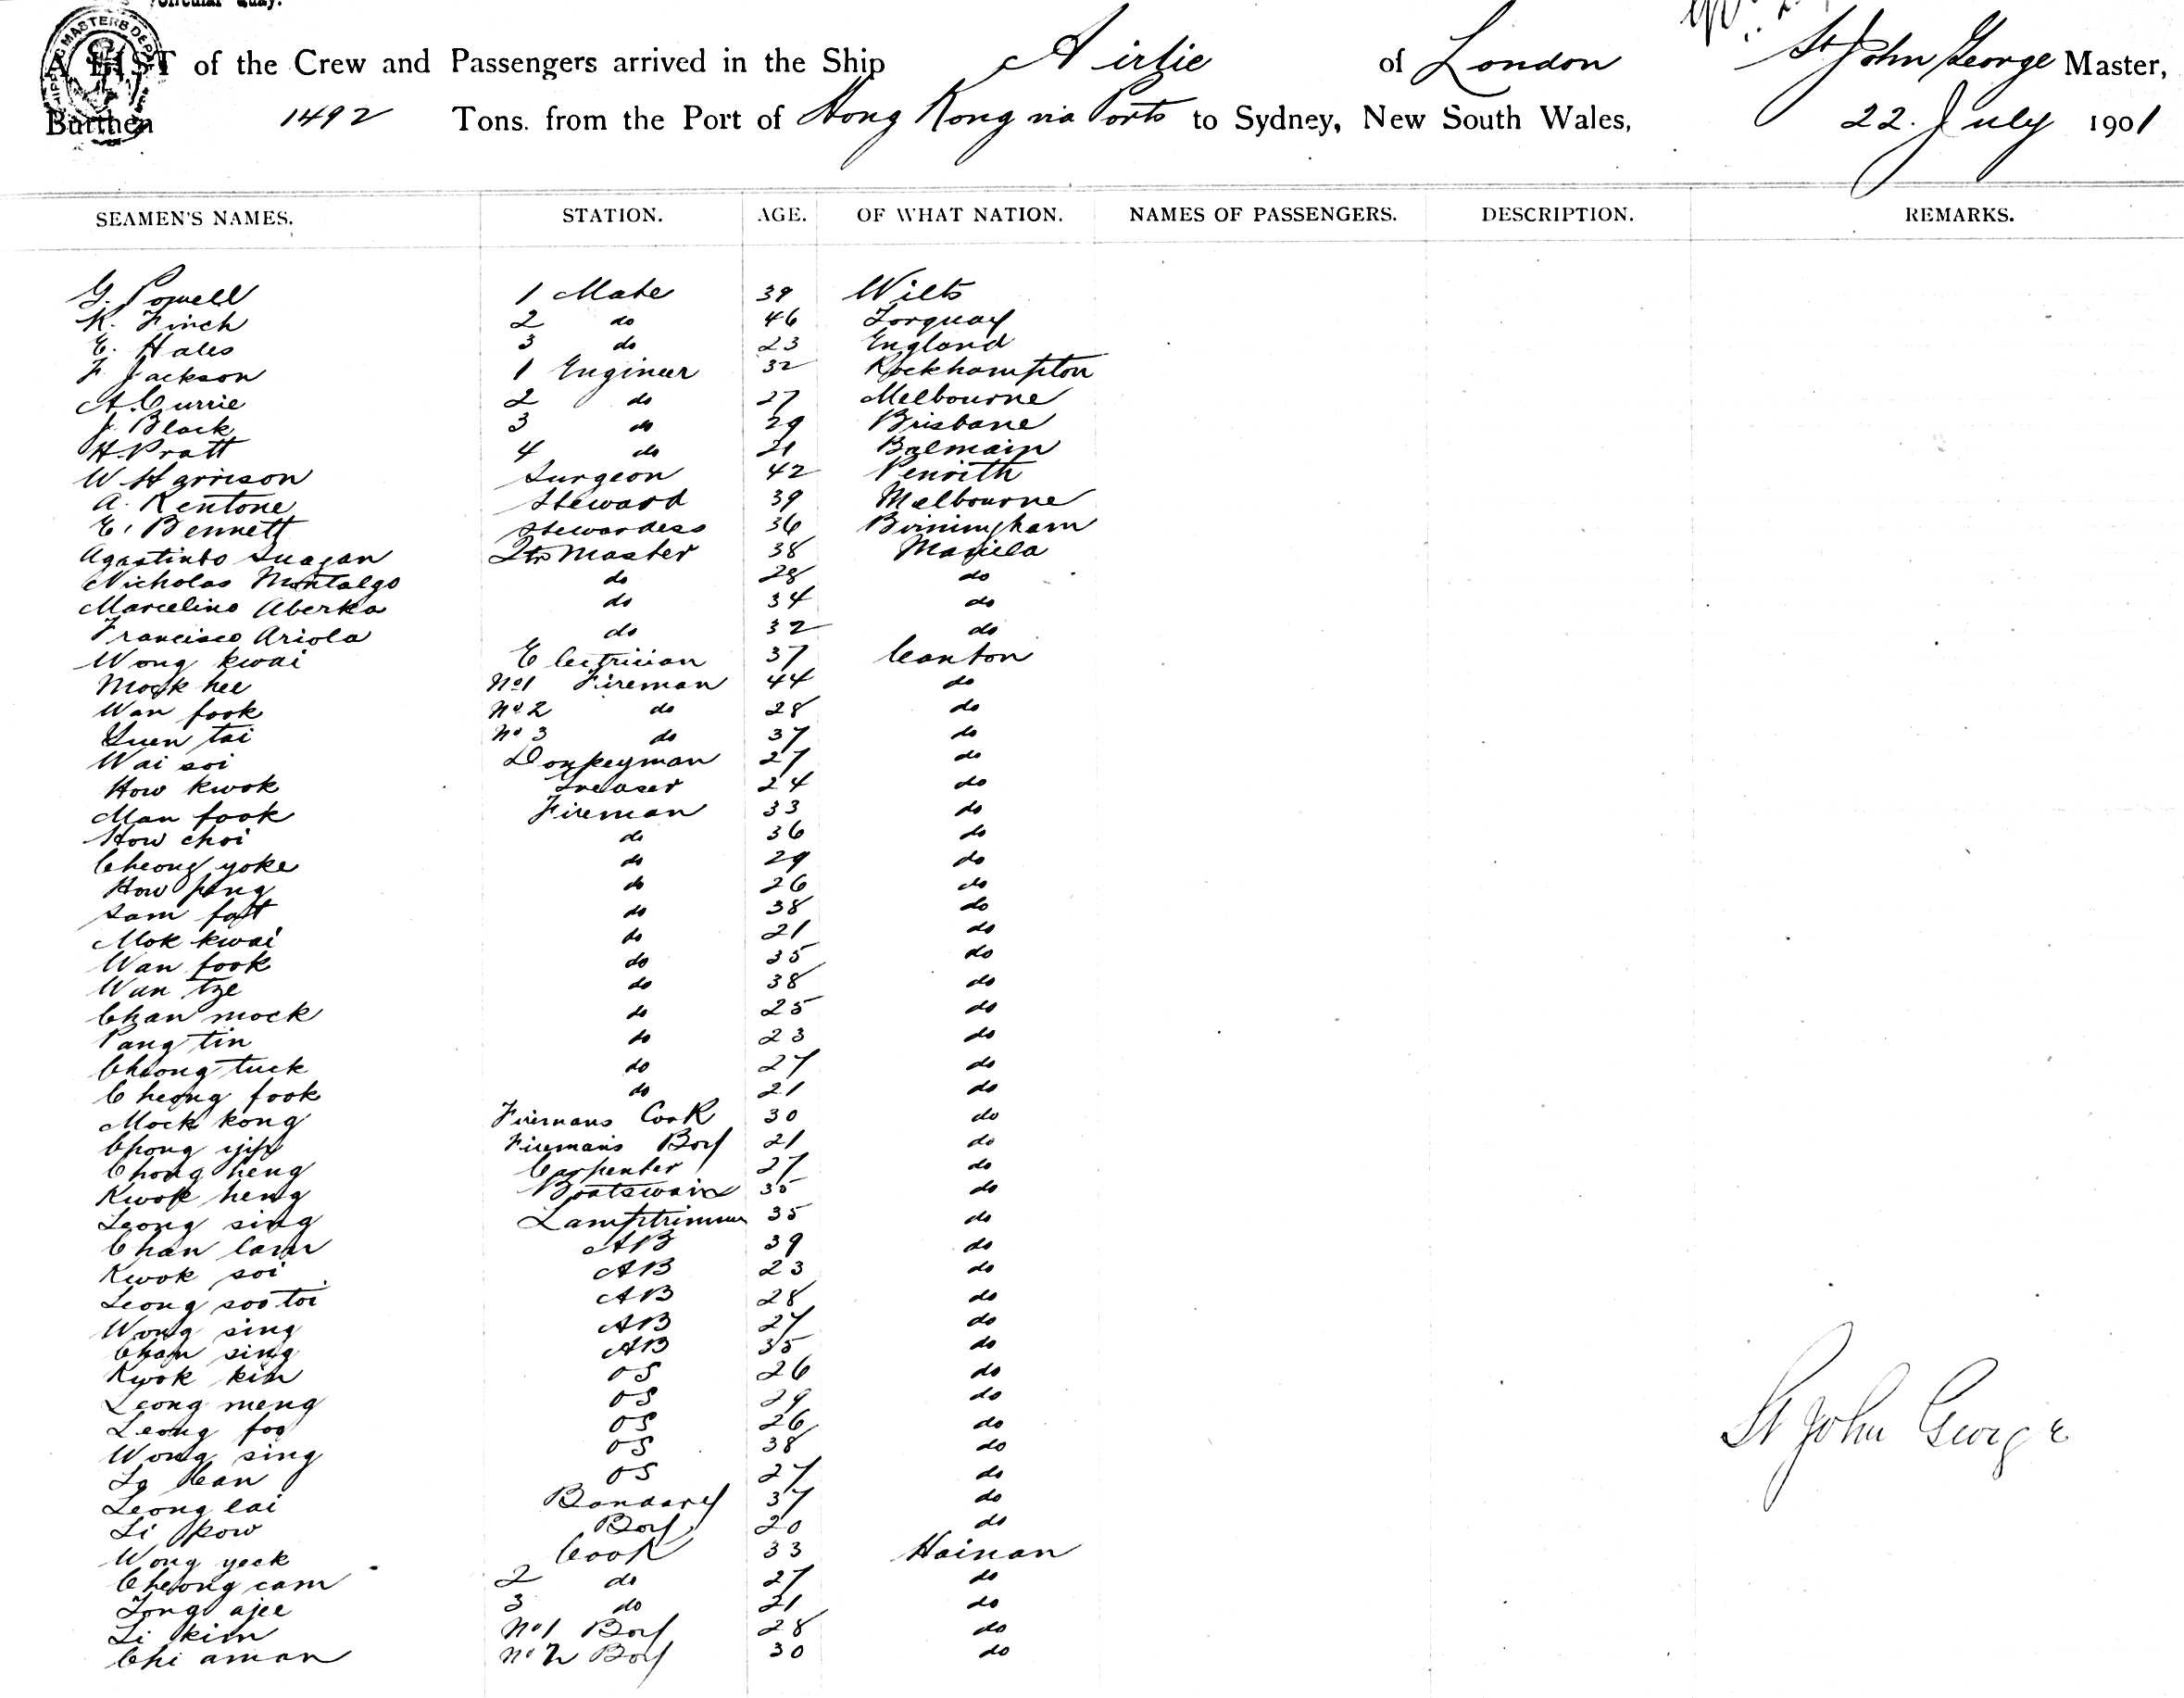 Circular Quay.
SHIPPING MASTERS DEP
A LIST of the Crew and Passengers arrived in the Ship Airlie of London St John George Master,
Burthen 1492 Tons. from the Port of Hong Kong via Ports to Sydney, New South Wales, 22. July 1901
SEAMEN'S NAMES. STATION. AGE. OF WHAT NATION. NAMES OF PASSENGERS. DESCRIPTION. REMARKS.
G. Powell 1 Mate 39 Wilts
K. Finch 2 do 46 Torquay
E. Hales 3 do 23 England
F Jackson 1 Engineer 32 Rockhampton
A. Currie 2 do 27 Melbourne
J. Black 3 do 29 Brisbane
H. Pratt 4 do 21 Balmain
W Harrison Surgeon 42 Penrith
A. Kentone Steward 39 Melbourne
E. Bennett Stewardess 36 Birmingham
Agastinto Master 38 Manila
Nicholas Montalgo do 28 do
Marcelino Aberka do 34 do
Francisco Ariola do 32 do
Wong kwai Electrician 37 Canton
Mock hee No1 Fireman 44 do
Wan fook No 2 do 28 do
Yuen tai No 3 do 37 do
Wai soi Donkeyman 27 do
How kwok Greaser 24 do
Man fook Fireman 33 do
How choi do 36 do
Cheong yoke do 29 do
How peng do 26 do
Sam fatt do 38 do
Mok kwai do 21 do
Wan fook do 35 do
Wan tze do 38 do
Chan mock do 25 do
Pang tin do 23 do
Cheong tuck do 27 do
Cheong fook do 21 do
Mock kong Firemans Cook 30 do
Chong Fireman's Boy 21 do
Chong heng Carpenter 27 do
Kwok heng Boatswain 35 do
Leong sing Lamptrimmer 35 do
Chan lam AB 39 do
Kwok soi AB 23 do
Leong soo toi AB 28 do
Wong sing AB 27 do
Chan sing AB 35 do
Kwok kim OS 26 do
Leong meng OS 29 do
Leong foo OS 26 do
Wong sing OS 38 do
Lo can OS 27 do
Leong lai Bandary 37 do
Li kow Boy 20 do
Wong yeck Cook 33 Hainan
Cheong cam 2 do 27 do
Tong ajee 3 do 21 do
Li kim No1 Boy 28 do
Chi aman No 2 Boy 30 do
St John George